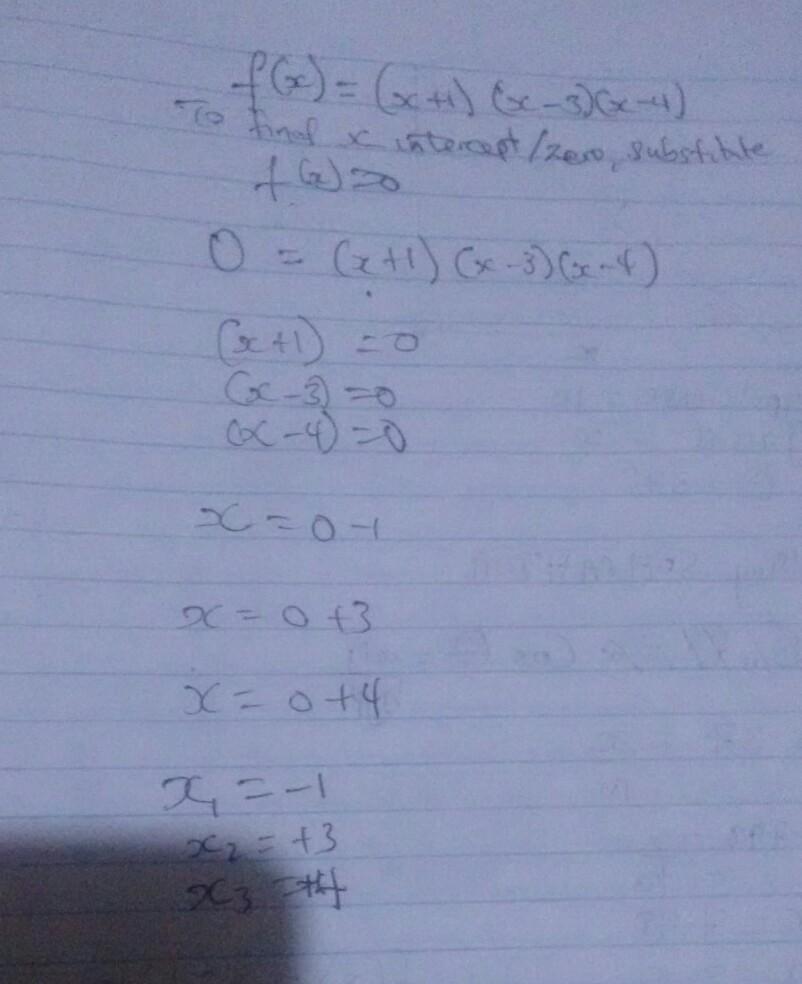 f(x) = (x+1) (x-3)(x-4)
To find x intercept/zero, substitute
f(x)=0
0 = (x+1) (x-3)(x-4)
(x+1) = 0
(x-3) = 0
(x-4) = 0
x = 0-1
x = 0+3
x = 0+4
x₁ = -1
x₂ = +3
x₃ = +4